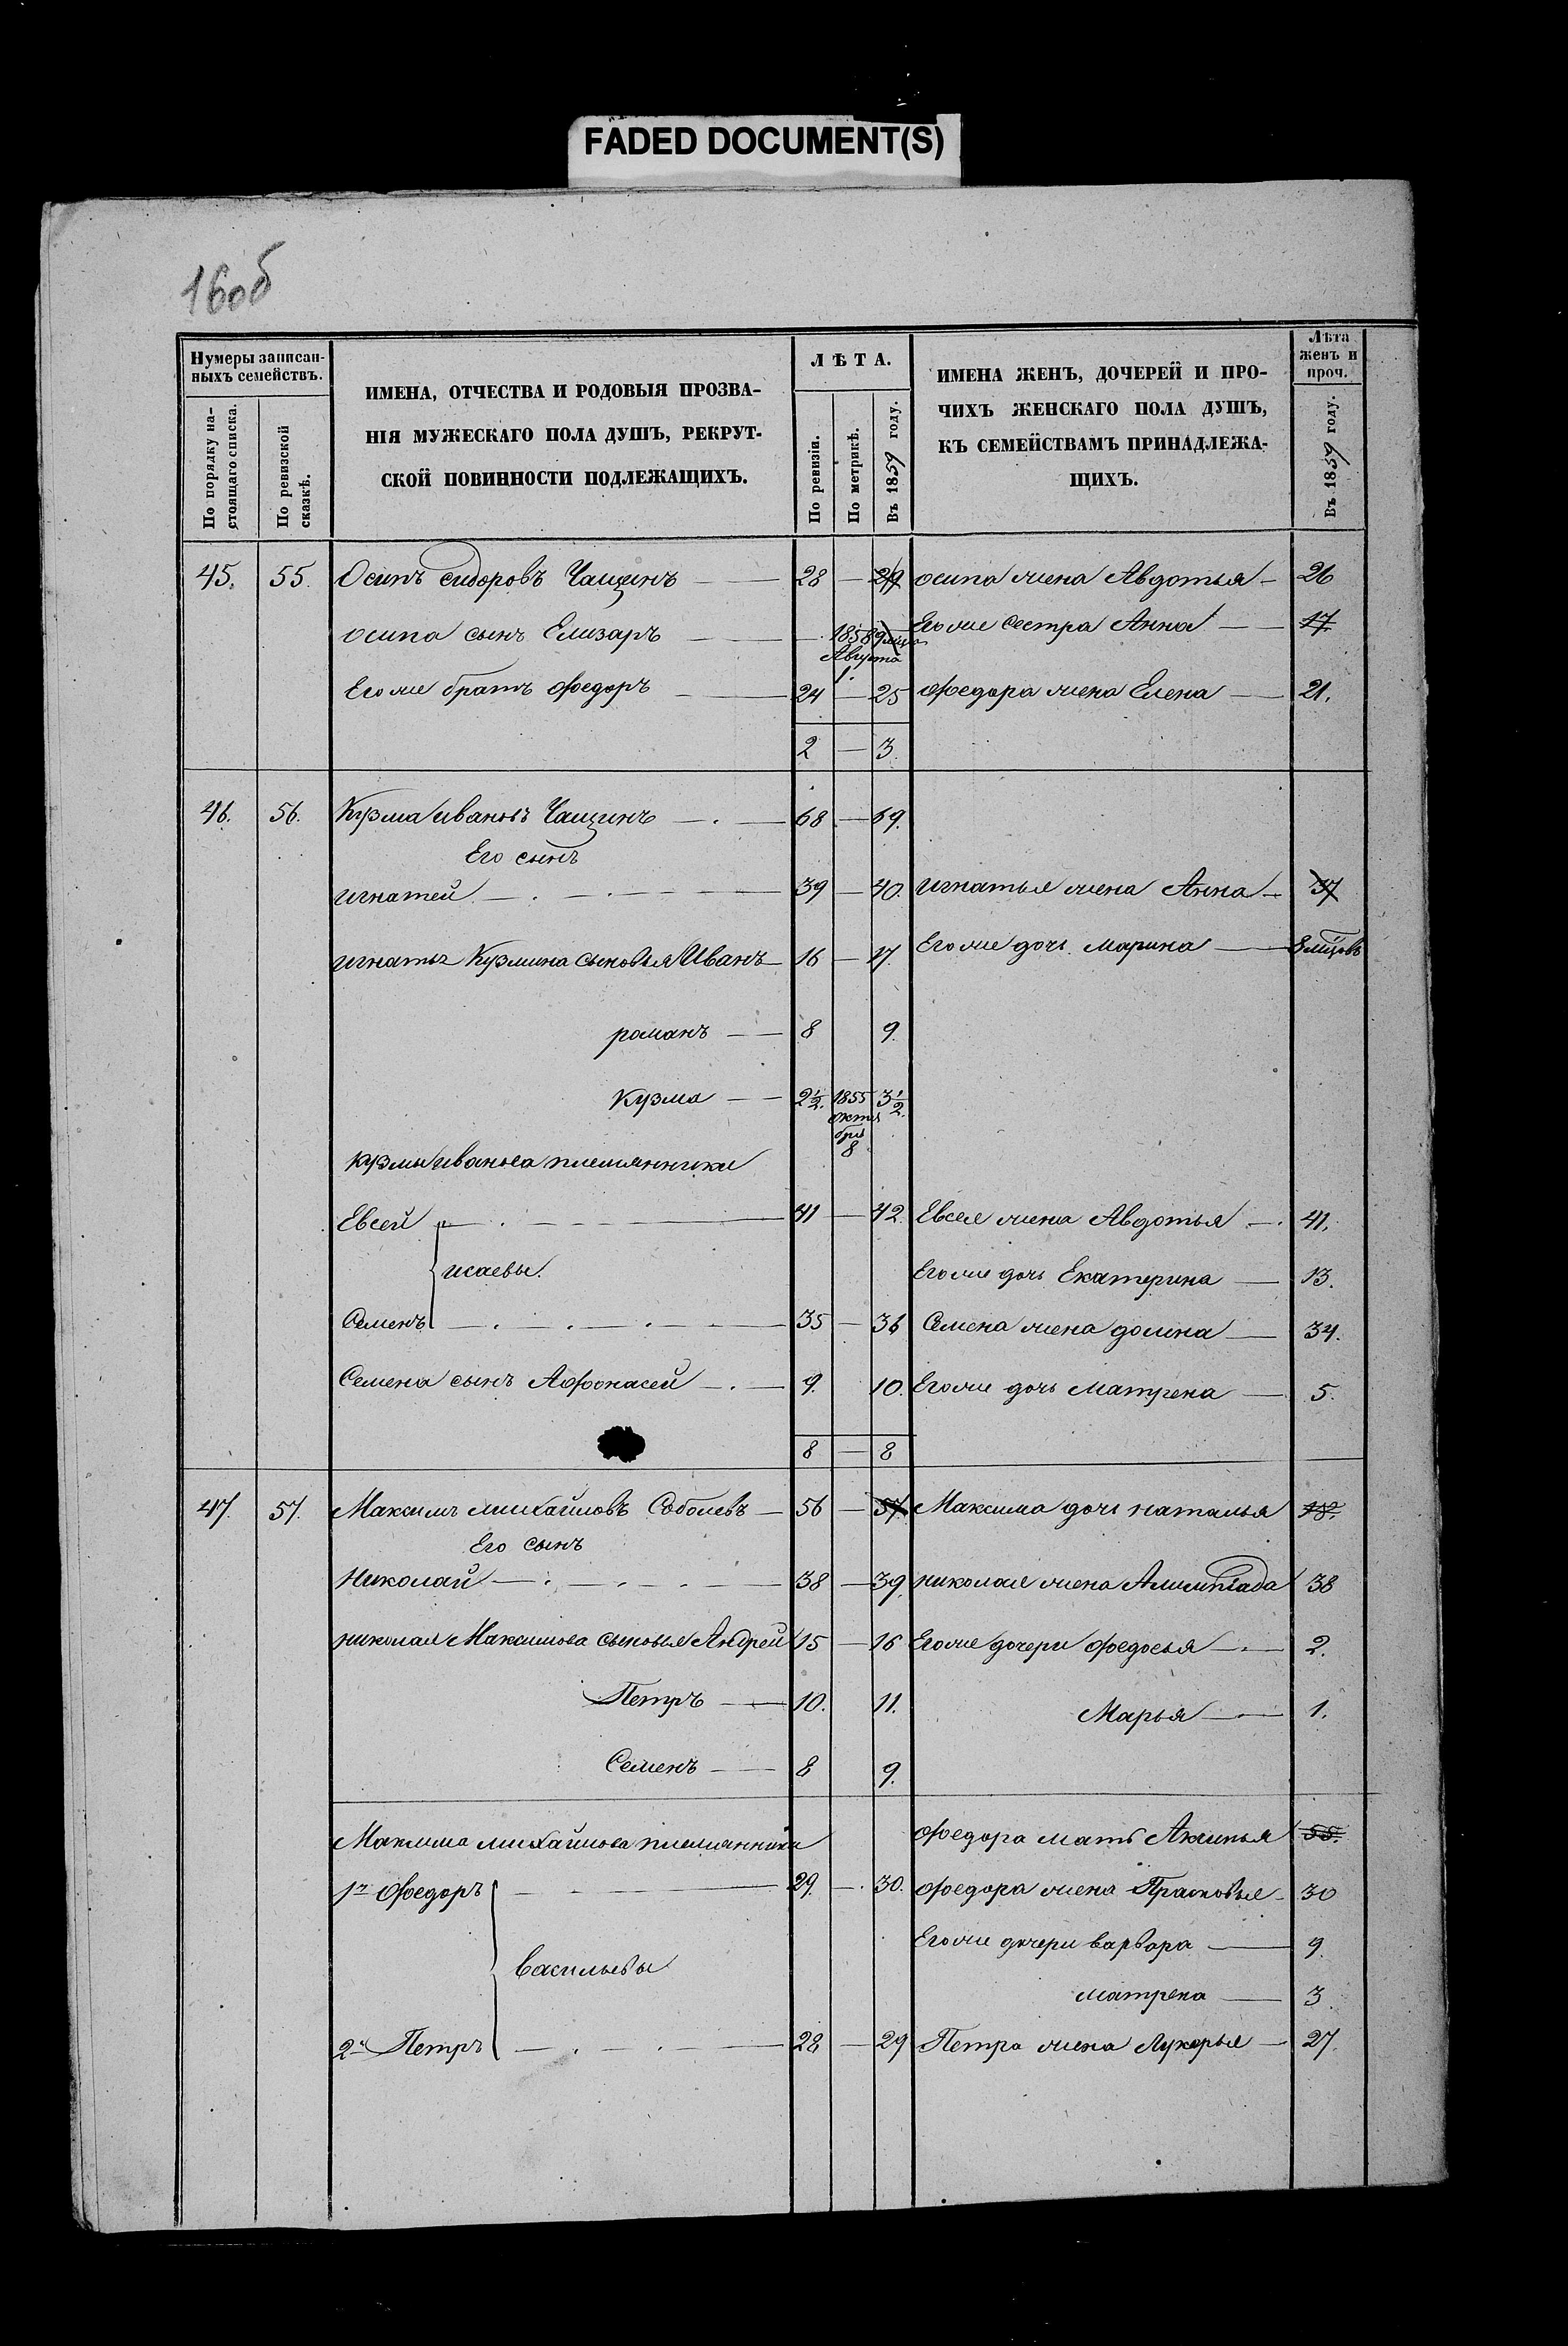 FADED DOCUMENT(S)
16об
Нумеры записан-
ныхъ семействъ.
По порядку на-
стоящаго списка.
По ревизской
сказкѣ.
ИМЕНА, ОТЧЕСТВА И РОДОВЫЯ ПРОЗВА-
НІЯ МУЖЕСКАГО ПОЛА ДУШЪ, РЕКРУТ-
СКОЙ ПОВИННОСТИ ПОДЛЕЖАЩИХЪ.
ЛѢТА.
По ревизіи.
По метрикѣ.
Въ 1859 году.
ИМЕНА ЖЕНЪ, ДОЧЕРЕЙ И ПРО-
ЧИХЪ ЖЕНСКАГО ПОЛА ДУШЪ,
КЪ СЕМЕЙСТВАМЪ ПРИНАДЛЕЖА-
ЩИХЪ.
Лѣта
женъ и
проч.
Въ 1859 году.
45. 55. Осипъ сидоровъ Чащинъ — 28 — 29 осипа жена Авдотья — 26
осипа сынъ Елизаръ — 1858 Августа 1. 9 Егоже сестра Анна — 17.
Егоже братъ Ѳедоръ — 24 — 25 Ѳедора жена Елена — 21.
2 — 3.
46. 56. Кузма ивановъ Чащинъ — 68 — 69.
Его сынъ
игнатей — 39 — 40. игнатья жена Анна — 37
игнатья Кузмина сыновья Иванъ — 16 — 17. Егоже дочь марина — 8 мѣсцовъ
романъ — 8 9.
Кузма — 2½. 1855 октября 8 3½.
кузмы иванова племянники
Евсей — 41 — 42. Евсея жена Авдотья — 41.
исаевы. Егоже дочь Екатерина — 13.
Семенъ — 35 — 36 Семена жена домна — 34.
Семена сынъ Афонасей — 9. 10. Егоже дочь матрена — 5.
8 — 8
47. 57. Максимъ михайловъ Соболевъ — 56 — 57. Максима дочь наталья 18.
Его сынъ
николай — 38 — 39. николая жена Алимпіада 38
николая Максимова сыновья Андрей 15 — 16 Егоже дочери Ѳедосья — 2.
Петръ — 10. 11. Марья — 1.
Семенъ — 8 9.
Максима михайлова племянники Ѳедора мать Акинья 55.
1й Ѳедоръ — 29. — 30. Ѳедора жена Прасковья — 30
васильевы Егоже дочери варвара — 9.
матрена — 3.
2й Петръ — 28 — 29 Петра жена Лукерья — 27.